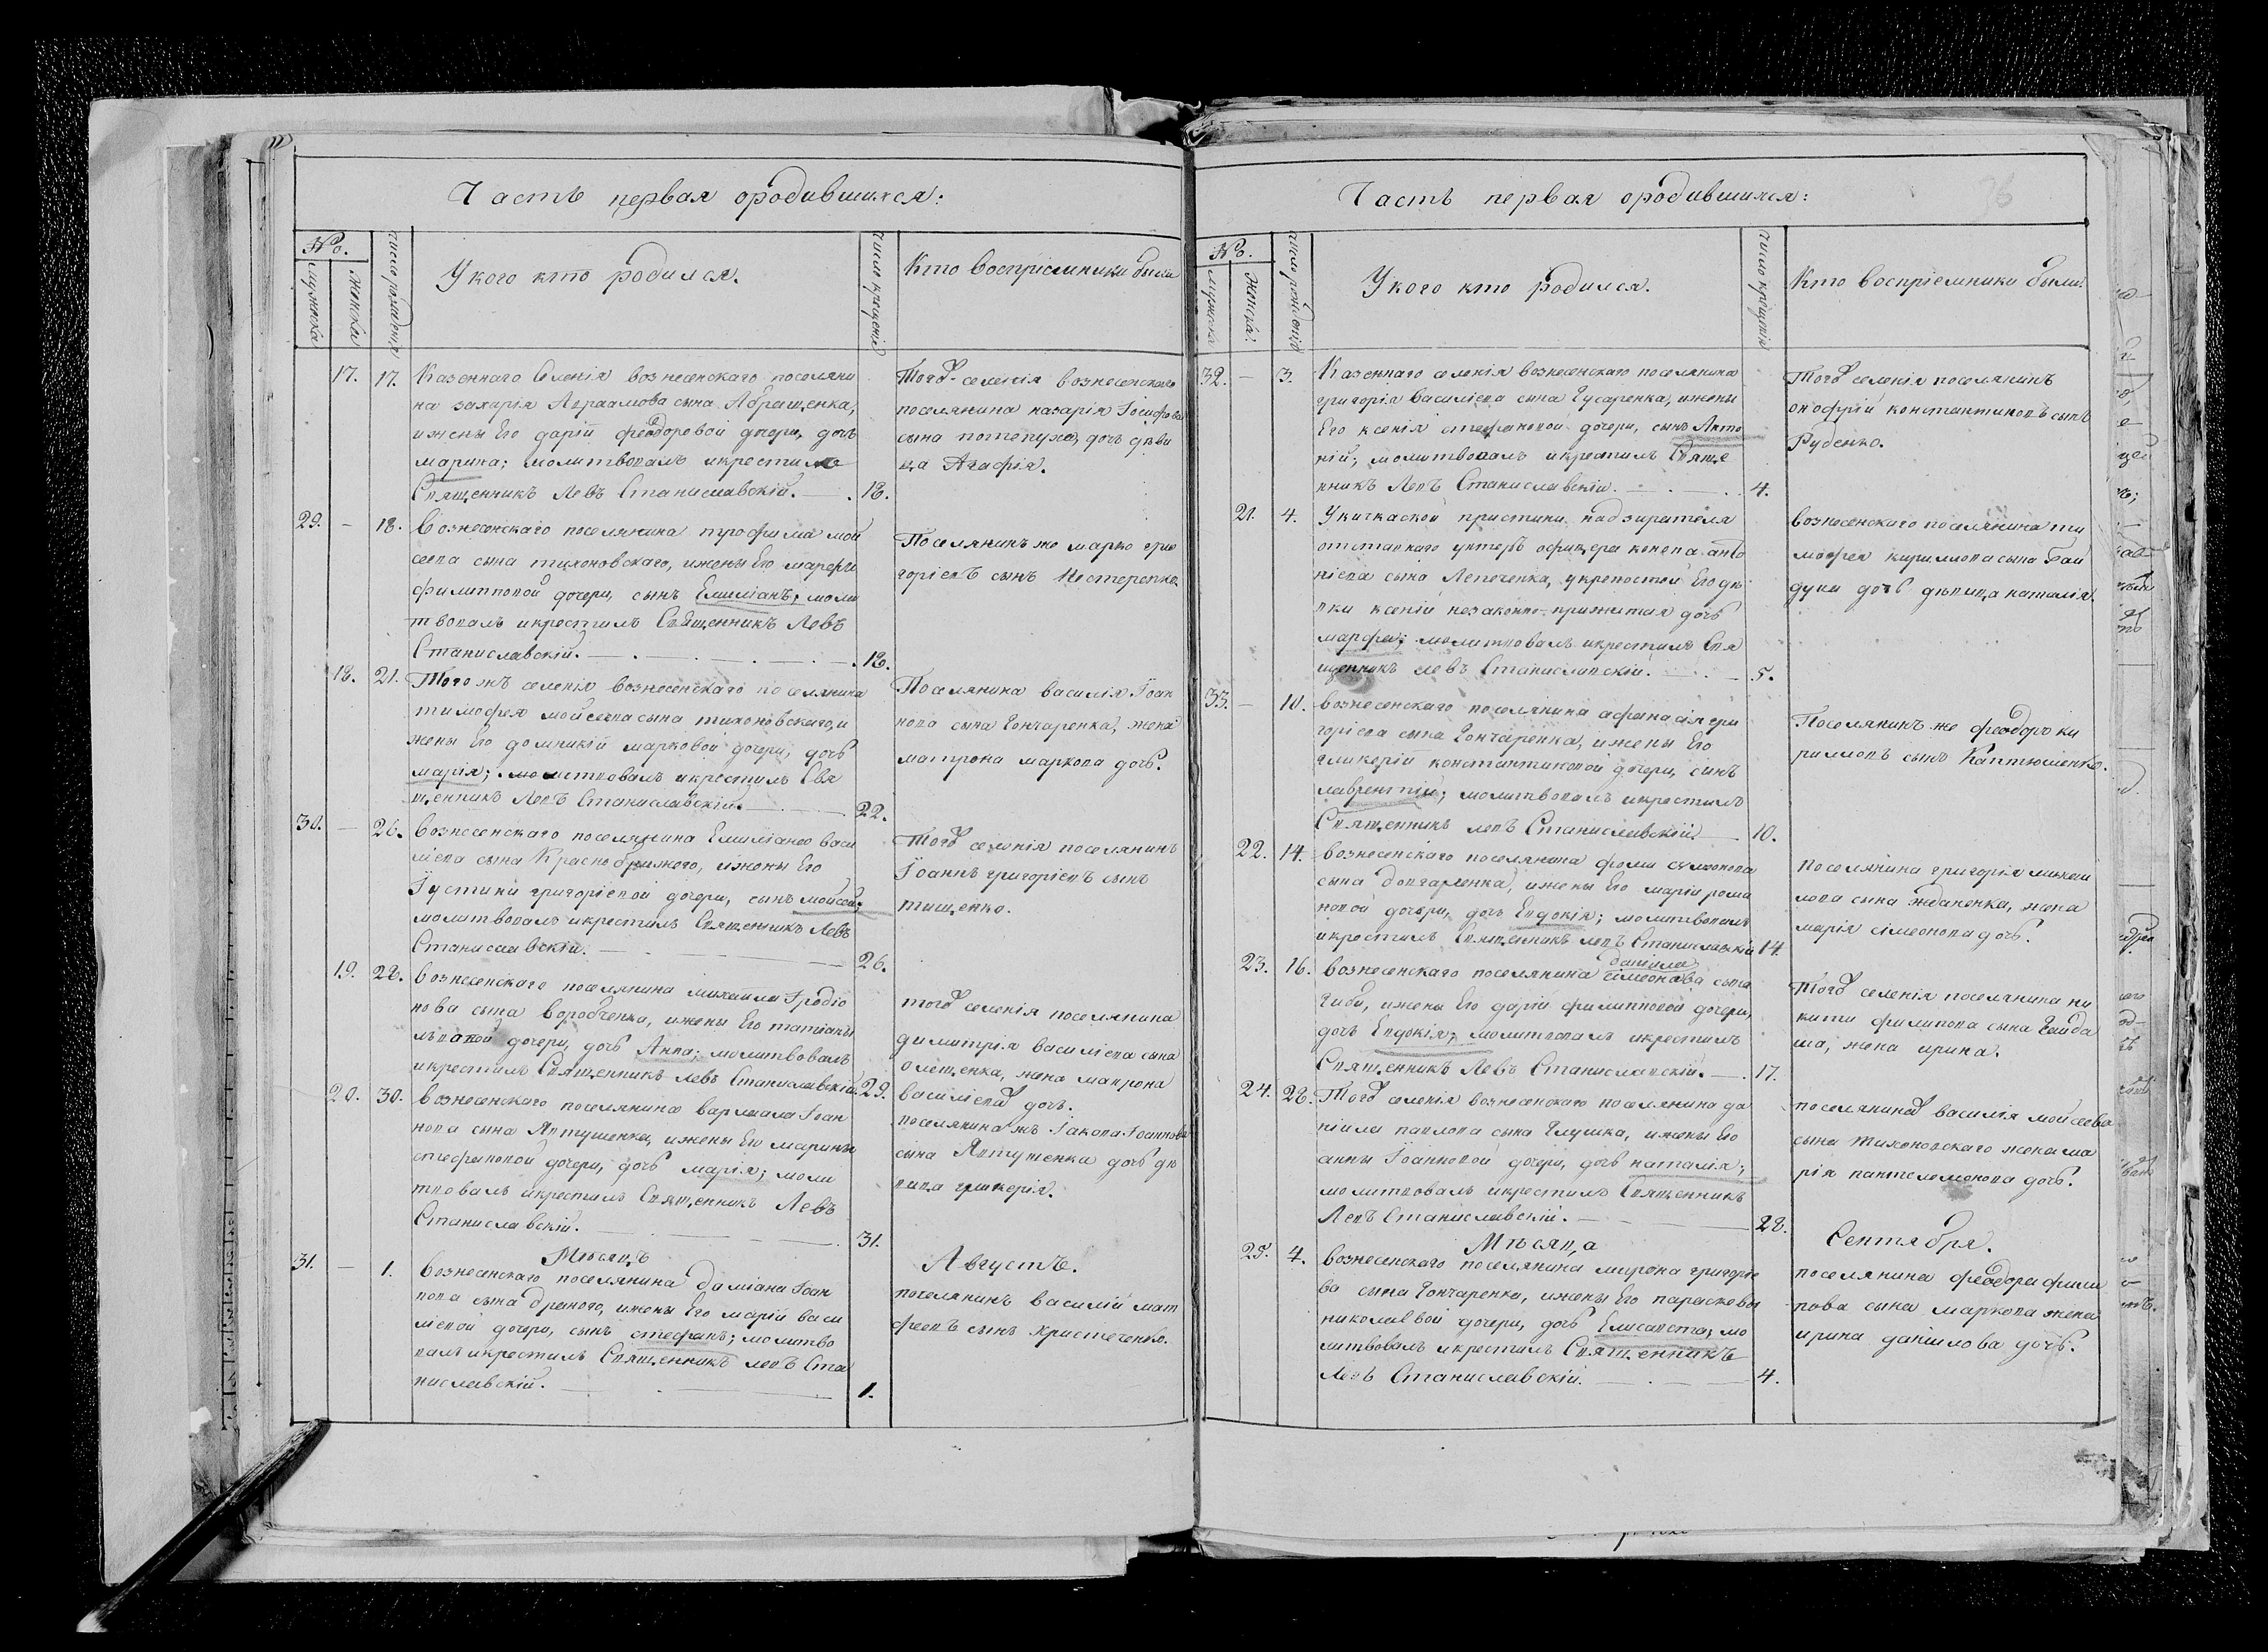 Часть первая ородившихся:
№.
мужеска
женска
число рождения
У кого кто родился.
число крещенiя
Кто воспрiемники были
17. 17. Казеннаго селенiя вознесенскаго поселяни
на захарiя Авраамова сына Абращенка,
ижены Его дарiи феодоровой дочери, дочь
марина; молитвовалъ икрестилъ
Священникъ Левъ Станиславскiй. 18.
Тогоъ селенiя вознесенскаго
поселянина назарiя Iосифова
сына потепуха, дочь дѣви
ца Агафiя.
29. - 18. Вознесенскаго поселянина трофима мой
сеева сына тихоновскаго, ижены Его марфы
филипповой дочери, сынъ Емилiанъ; моли
твовалъ икрестилъ Священникъ Левъ
Станиславскiй. 18.
Поселянинъ же марко гри
горiевъ сынъ Нестеренко.
18. 21. Того жъ селенiя вознесенскаго поселянина
тимофея мойсеева сына тихоновскаго, и
жены Его домникiи марковой дочери, дочь
марiя; молитвовалъ икрестилъ Свя
щенникъ Левъ Станиславскiй. 22.
Поселянина василiя Iоан
нова сына Гончаренка, жена
матрона маркова дочь.
30. - 26. Вознесенскаго поселянина Емилiана васи
лiева сына Краснобрижого, ижены Его
Iустинiи григорiевой дочери, сынъ мойсей;
молитвовалъ икрестилъ Священникъ Левъ
Станиславскiй. 26.
Тогоъ селенiя поселянинъ
Iоаннъ григорiевъ сынъ
тищенко.
19. 28. Вознесенскаго поселянина михаила Iродiо
нова сына воробченка, ижены Его татiаны
львовой дочери, дочь Анна; молитвовалъ
икрестилъ Священникъ Левъ Станиславскiй. 29.
тогоъ селенiя поселянина
димитрiя василiева сына
Олещенка, жена матрона
василiева дочь.
20. 30. Вознесенскаго поселянина варлаама Iоан
нова сына Явтушенка, ижены Его марины
стефановой дочери, дочь марiя; моли
твовалъ икрестилъ Священникъ Левъ
Станиславскiй. 31.
поселянина жъ Iакова Iоаннова
сына Явтушенка дочь дѣ
вица гликерiя.
Мѣсяцъ Августъ.
31. - 1. Вознесенскаго поселянина дамiана Iоан
нова сына дреного, ижены Его марiи васи
лiевой дочери, сынъ стефанъ; молитво
валъ икрестилъ Священникъ левъ Ста
ниславскiй. 1.
поселянинъ василiй мат
феевъ сынъ христеченко.
Часть первая ородившихся:
36
№.
мужеска
женска
число рожденiя
У кого кто родился.
число крещенiя
Кто воспрiемники были
32. - 3. Казеннаго селенiя вознесенскаго поселянина
григорiя василiева сына Гусаренка, ижены
Его ксенiи стефановой дочери, сынъ Анто
нiй; молитвовалъ икрестилъ Свяще
нникъ Левъ Станиславскiй. 4.
Тогоъ селенiя поселянинъ
онофрiй константиновъ сынъ
Руденко.
21. 4. Укичкаской пристини надзирателя
отставнаго унтеръ офицера конона анто
нiева сына Лепеченка, укрепостой Его дѣ
вки ксенiи незаконно-прижитая дочь
марфа; молитвовалъ икрестилъ Свя
щенникъ левъ Станиславскiй. 5.
вознесенскаго поселянина ти
мофея кириллова сына Бай
дуна дочь дѣвица наталiя.
33. - 10. Вознесенскаго поселянина афанасiя гри
горiева сына Гончаренка, ижены Его
гликерiи константиновой дочери, синъ
лаврентiй; молитвовалъ икрестилъ
Священникъ левъ Станиславскiй. 10.
Поселянинъ же феодоръ ки
рилловъ сынъ Каптюшенко.
22. 14. Вознесенскаго поселянина фомы сѵмеонова
сына довгаленка, ижены Его марiи рома
новой дочери, дочь Евдокiя; молитвовалъ
икрестилъ Священникъ левъ Станиславскiй 14.
поселянина григорiя михаи
лова сына жданенка, жена
марiя сiмеонова дочь.
данiила
23. 16. Вознесенскаго поселянина сiмеонова сына
Чиби, ижены Его дарiи филипповой дочери,
дочь Евдокiя; молитвовалъ икрестилъ
Священникъ Левъ Станиславскiй. 17.
Тогоъ селенiя поселянина ни
киты филипова сына Гайда
ша, жена ирина.
24. 28. Тогоъ селенiя вознесенскаго поселянина да
нiила павлова сына Глушка, ижены Его
анны Iоанновой дочери, дочь наталiя;
молитвовалъ икрестилъ Священникъ
Левъ Станиславскiй. 28.
поселянина василiя мойсеева
сына тихоновскаго жена ма
рiя пантелемонова дочь.
Мѣсяца Сентября.
25. 4. Вознесенскаго поселянина мирона григорiе
ва сына Гончаренка, ижены Его параскевы
николаевой дочери, дочь Елисавета; мо
литвовалъ икрестилъ Священникъ
Левъ Станиславскiй. 4.
поселянина феодора фили
пова сына маркова жена
ирина данилова дочь.